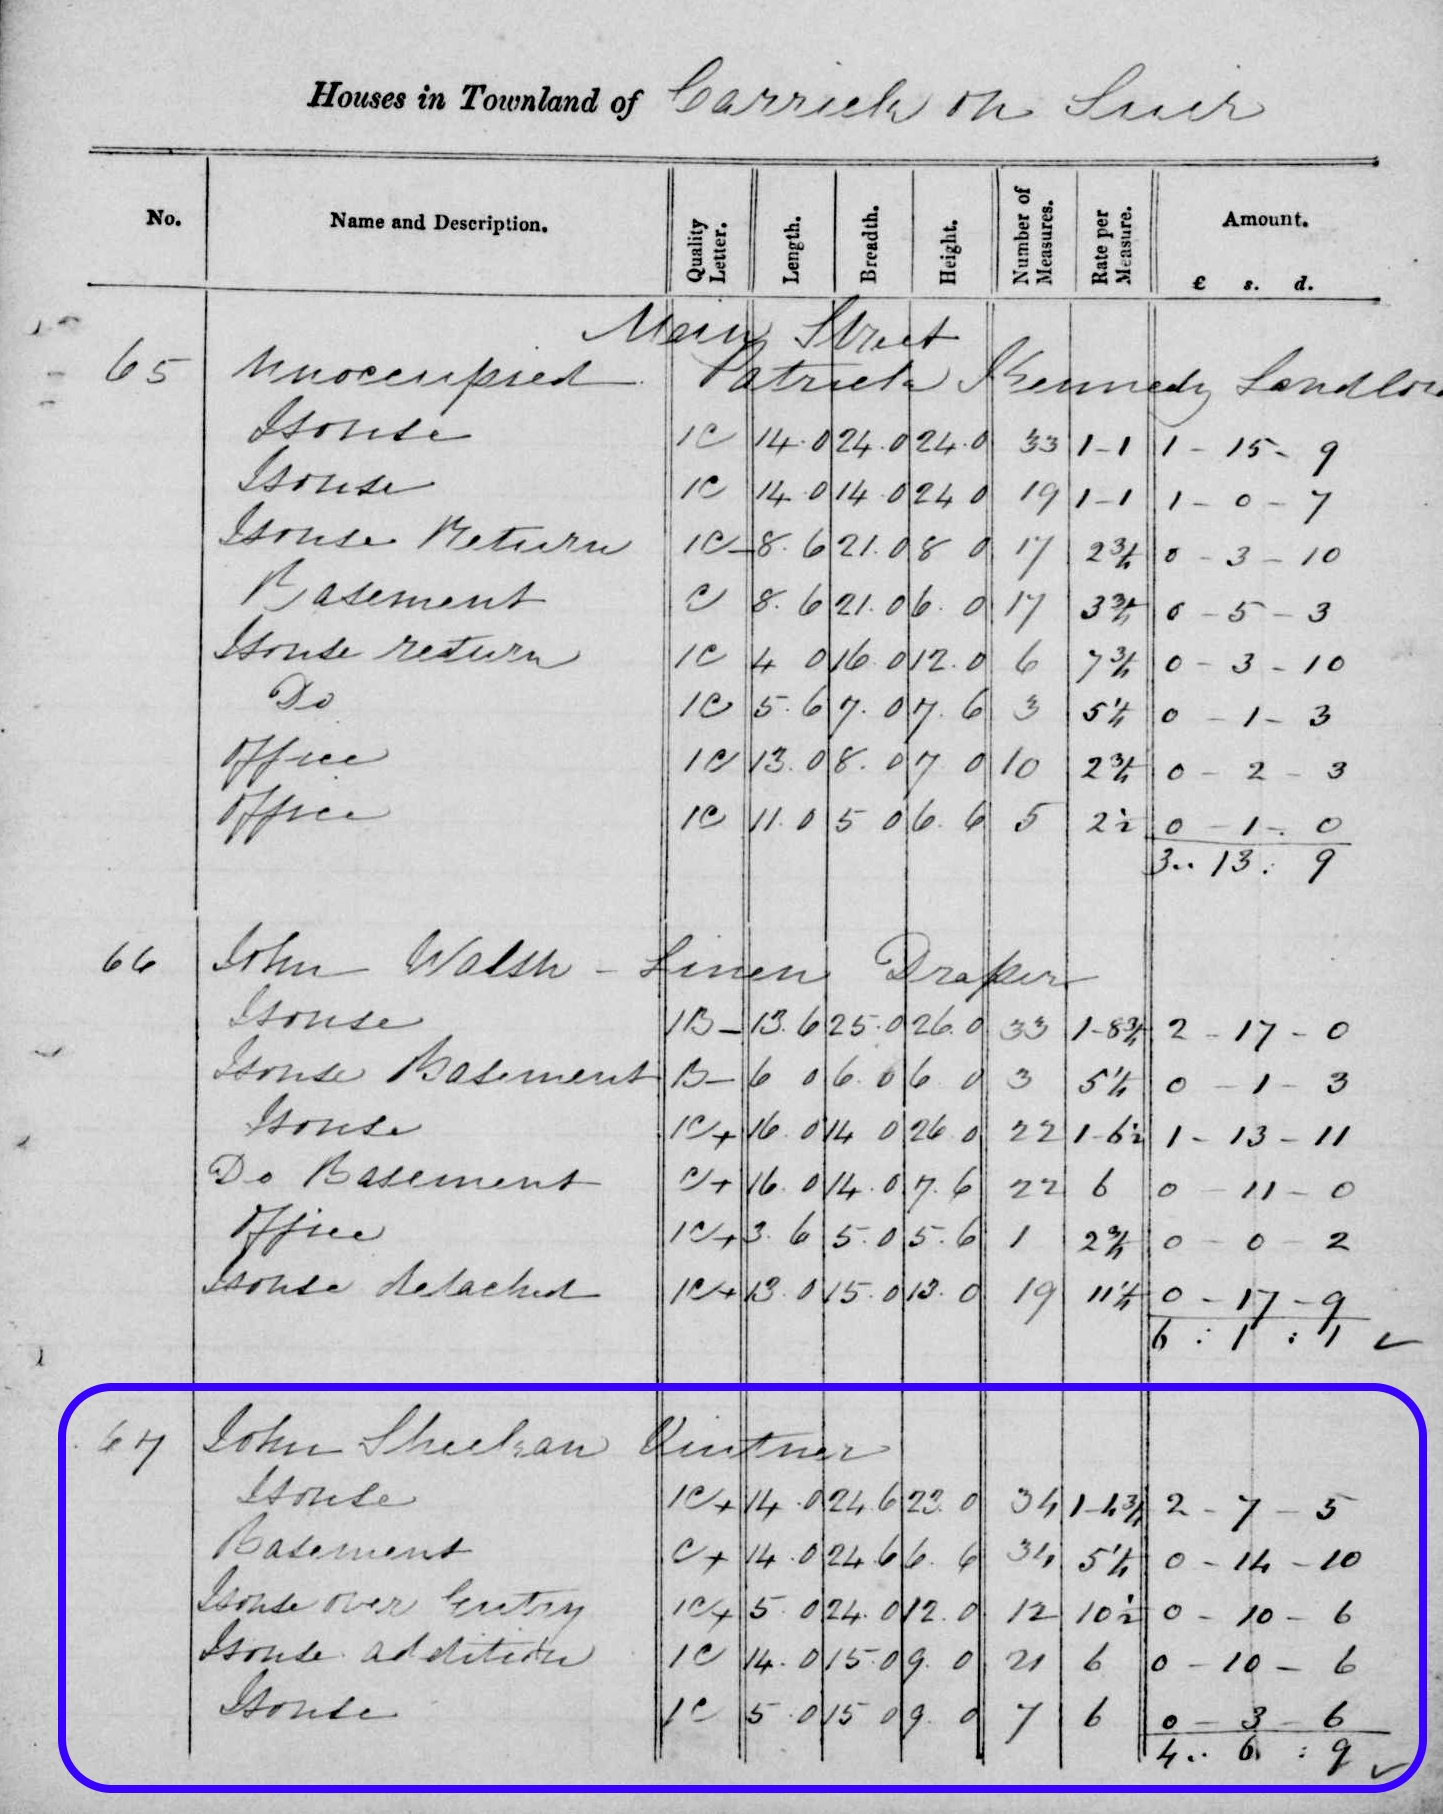 Houses in Townland of Carrick on Suir
No. Name and Description. Quality Letter. Length. Breadth. Height. Number of Measures. Rate per Measure. Amount. £ s. d.
Main Street
65 Unoccupied Patrick Kennedy Landlor
House 1C 14.0 24.0 24.0 33 1-1 1-15-9
House 1C 14.0 14.0 24 0 19 1-1 1-0-7
House Return 1C- 8.6 21.0 8 0 17 2¾ 0-3-10
Basement C 8.6 21.0 6.0 17 3¾ 0-5-3
House return 1C 4 0 16.0 12.0 6 7¾ 0-3-10
Do 1C 5.6 7.0 7.6 3 5¼ 0-1-3
Office 1C 13.0 8.0 7 0 10 2¾ 0-2-3
Office 1C 11.0 5 0 6.6 5 2½ 0-1-0
3..13.9
66 John Walsh - Linen Draper
House 1B- 13.6 25.0 26.0 33 1-8¾ 2-17-0
House Basement B- 6 0 6.0 6.0 3 5¼ 0-1-3
House 1C+ 16.0 14 0 26.0 22 1-6½ 1-13-11
Do Basement C+ 16.0 14.0 7.6 22 6 0-11-0
Office 1C+ 3.6 5.0 5.6 1 2¾ 0-0-2
House detached 1C+ 13.0 15.0 13.0 19 11¼ 0-17-9
6:1:1 ✓
67 John Sheehan Vintner
House 1C+ 14.0 24.6 23.0 34 1-4¾ 2-7-5
Basement C+ 14.0 24.6 6.6 34 5¼ 0-14-10
House over Entry 1C+ 5.0 24.0 12.0 12 10½ 0-10-6
House addition 1C 14.0 15.0 9.0 21 6 0-10-6
House 1C 5.0 15 0 9.0 7 6 0-3-6
4..6:9 ✓